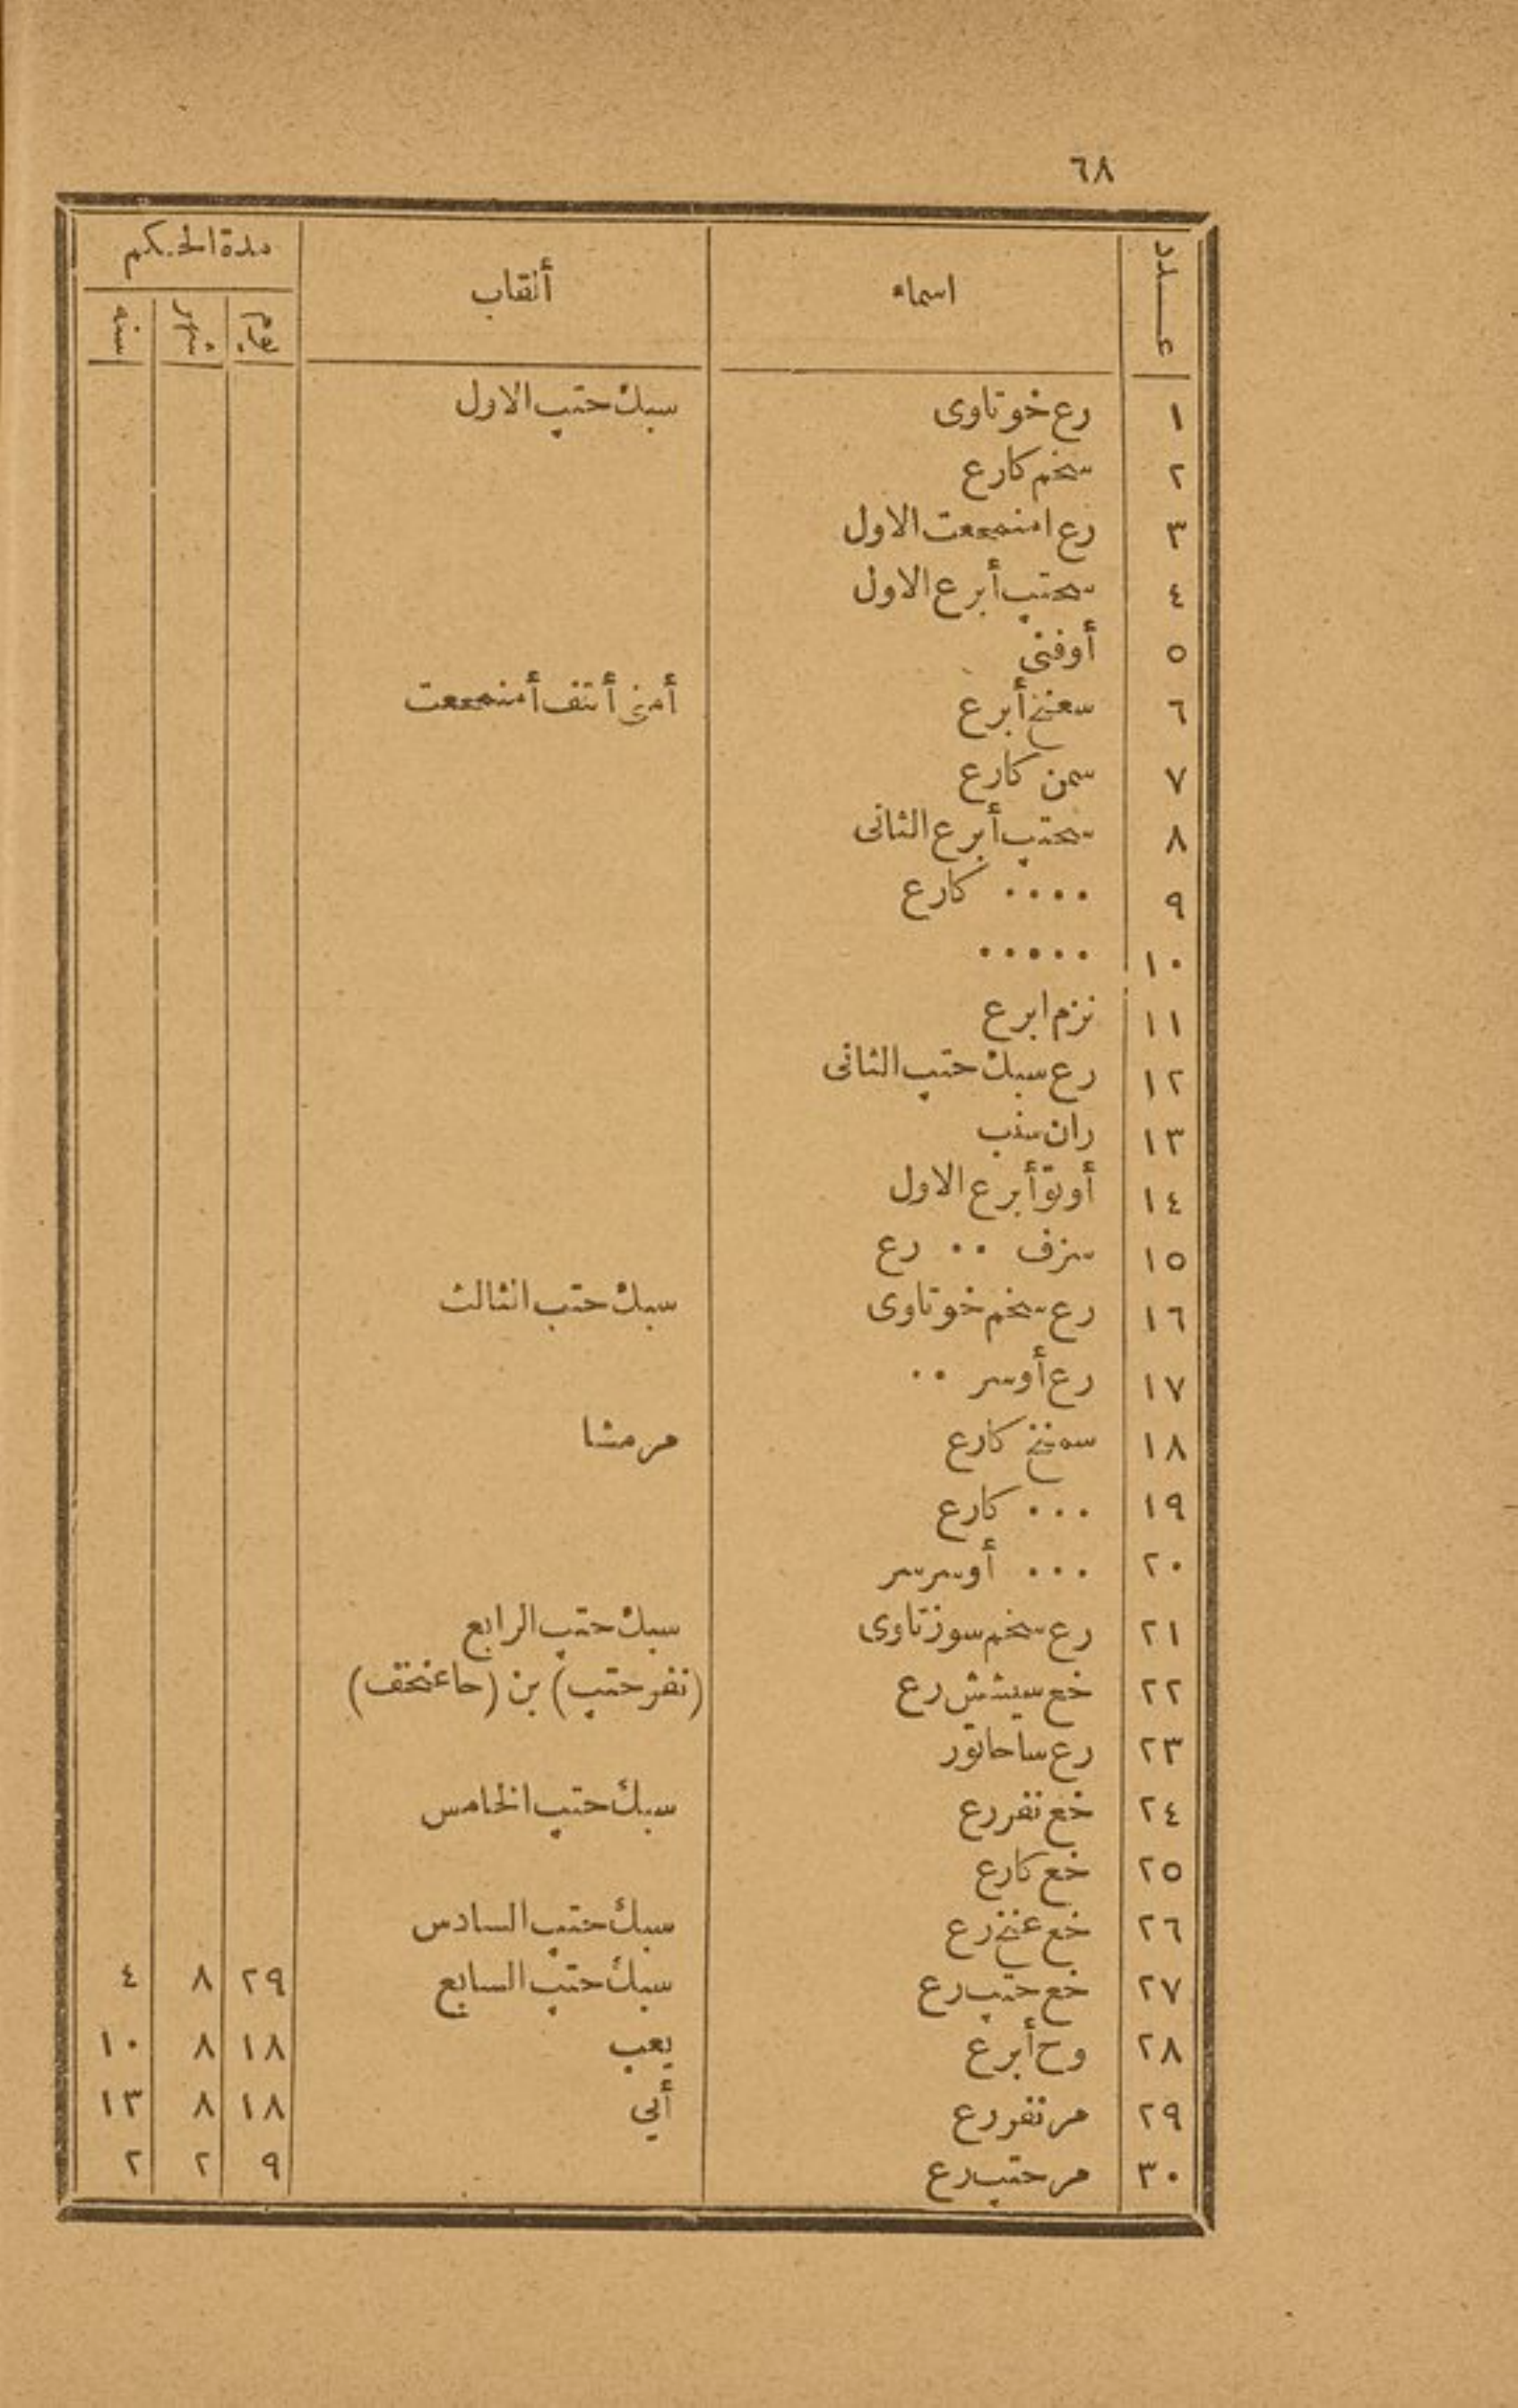 ٦٨
عدد اسماء ألقاب مدة الحكم
يوم شهر سنه
١ رع خوتاوى سبك حتپ الاول
٢ سخم كارع
٣ رع امنمحعت الاول
٤ سحتپ أبرع الاول
٥ أوفنى
٦ سعنخ أبرع أمنى أنتف أمنمحعت
٧ سمن كارع
٨ سحتپ أبرع الثانى
٩ ٠٠٠٠ كارع
١٠ ٠٠٠٠٠
١١ نزم ابرع
١٢ رع سبك حتپ الثانى
١٣ ران سنب
١٤ أوتو أبرع الاول
١٥ سزف ٠٠ رع
١٦ رع سخم خوتاوى سبك حتب الثالث
١٧ رع أوسر ٠٠
١٨ سمنخ كارع مرمشا
١٩ ٠٠٠ كارع
٢٠ ٠٠٠ أوسرسر
٢١ رع سخم سوزتاوى سبك حتپ الرابع
٢٢ خع سيشش رع (نفر حتپ) بن (حاعنخف)
٢٣ رع ساحاتور
٢٤ خع نفر رع سبك حتپ الخامس
٢٥ خع كارع
٢٦ خع عنخ رع سبك حتپ السادس
٢٧ خع حتپ رع سبك حتپ السابع ٢٩ ٨ ٤
٢٨ وح أبرع يعب ١٨ ٨ ١٠
٢٩ مر نفر رع أبي ١٨ ٨ ١٣
٣٠ مر حتپ رع ٩ ٢ ٢